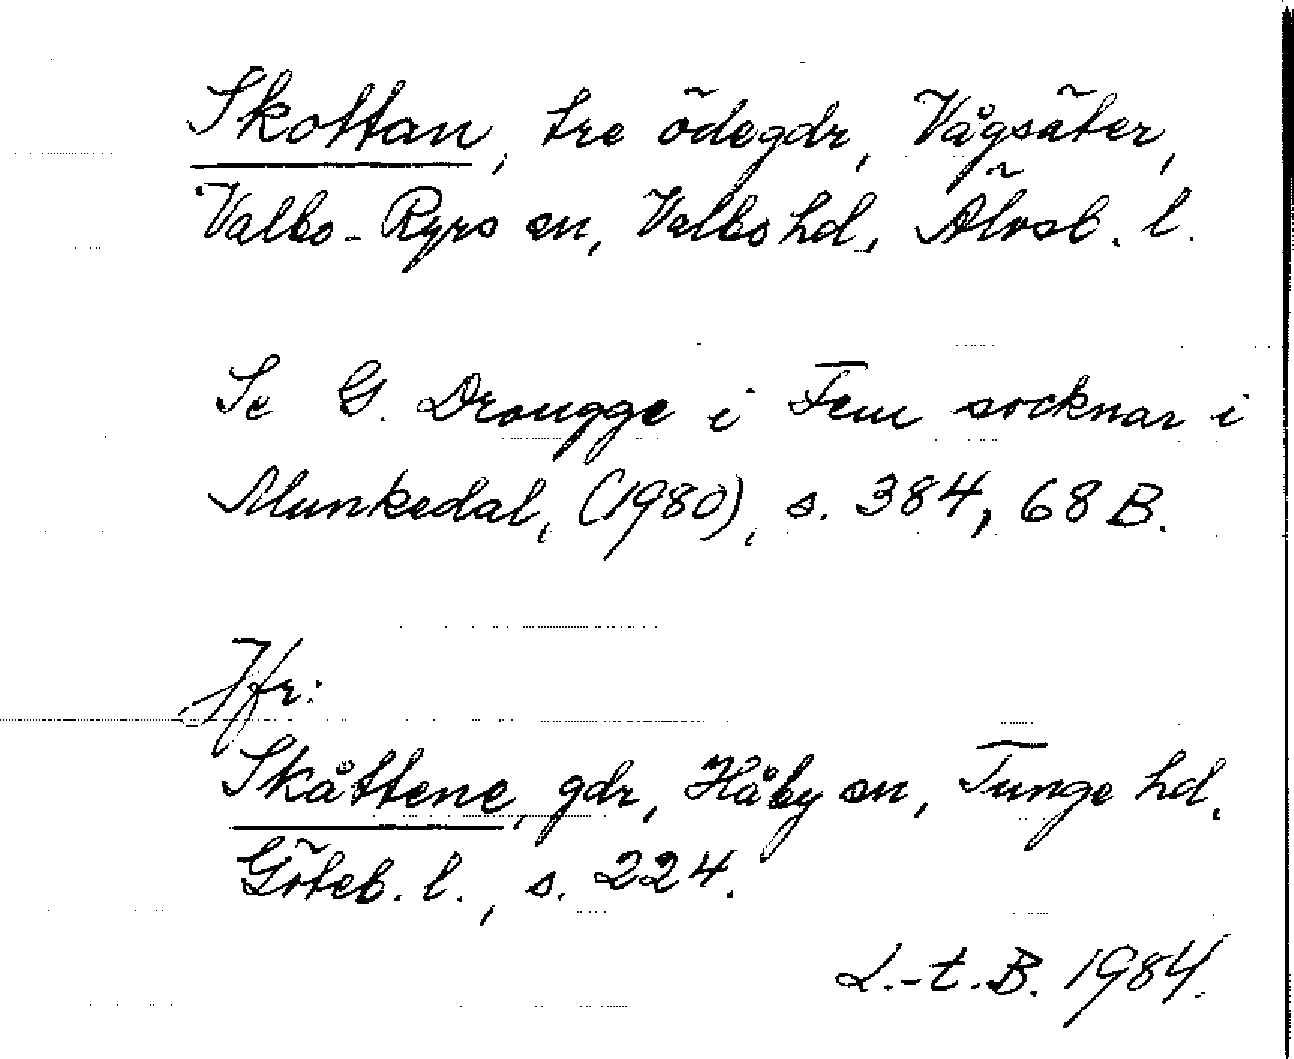 Skottan, tre ödegdr, Vågsäter,
Valbo-Ryrs sn, Valbo hd, Älvsb. l.
Se G. Drougge i Fem socknar i
Munkedal, (1980), s. 384, 68 B.
Jfr:
Skåttene, gdr, Håby sn, Tunge hd,
Göteb. l., s. 224.
L.-t. B. 1984.